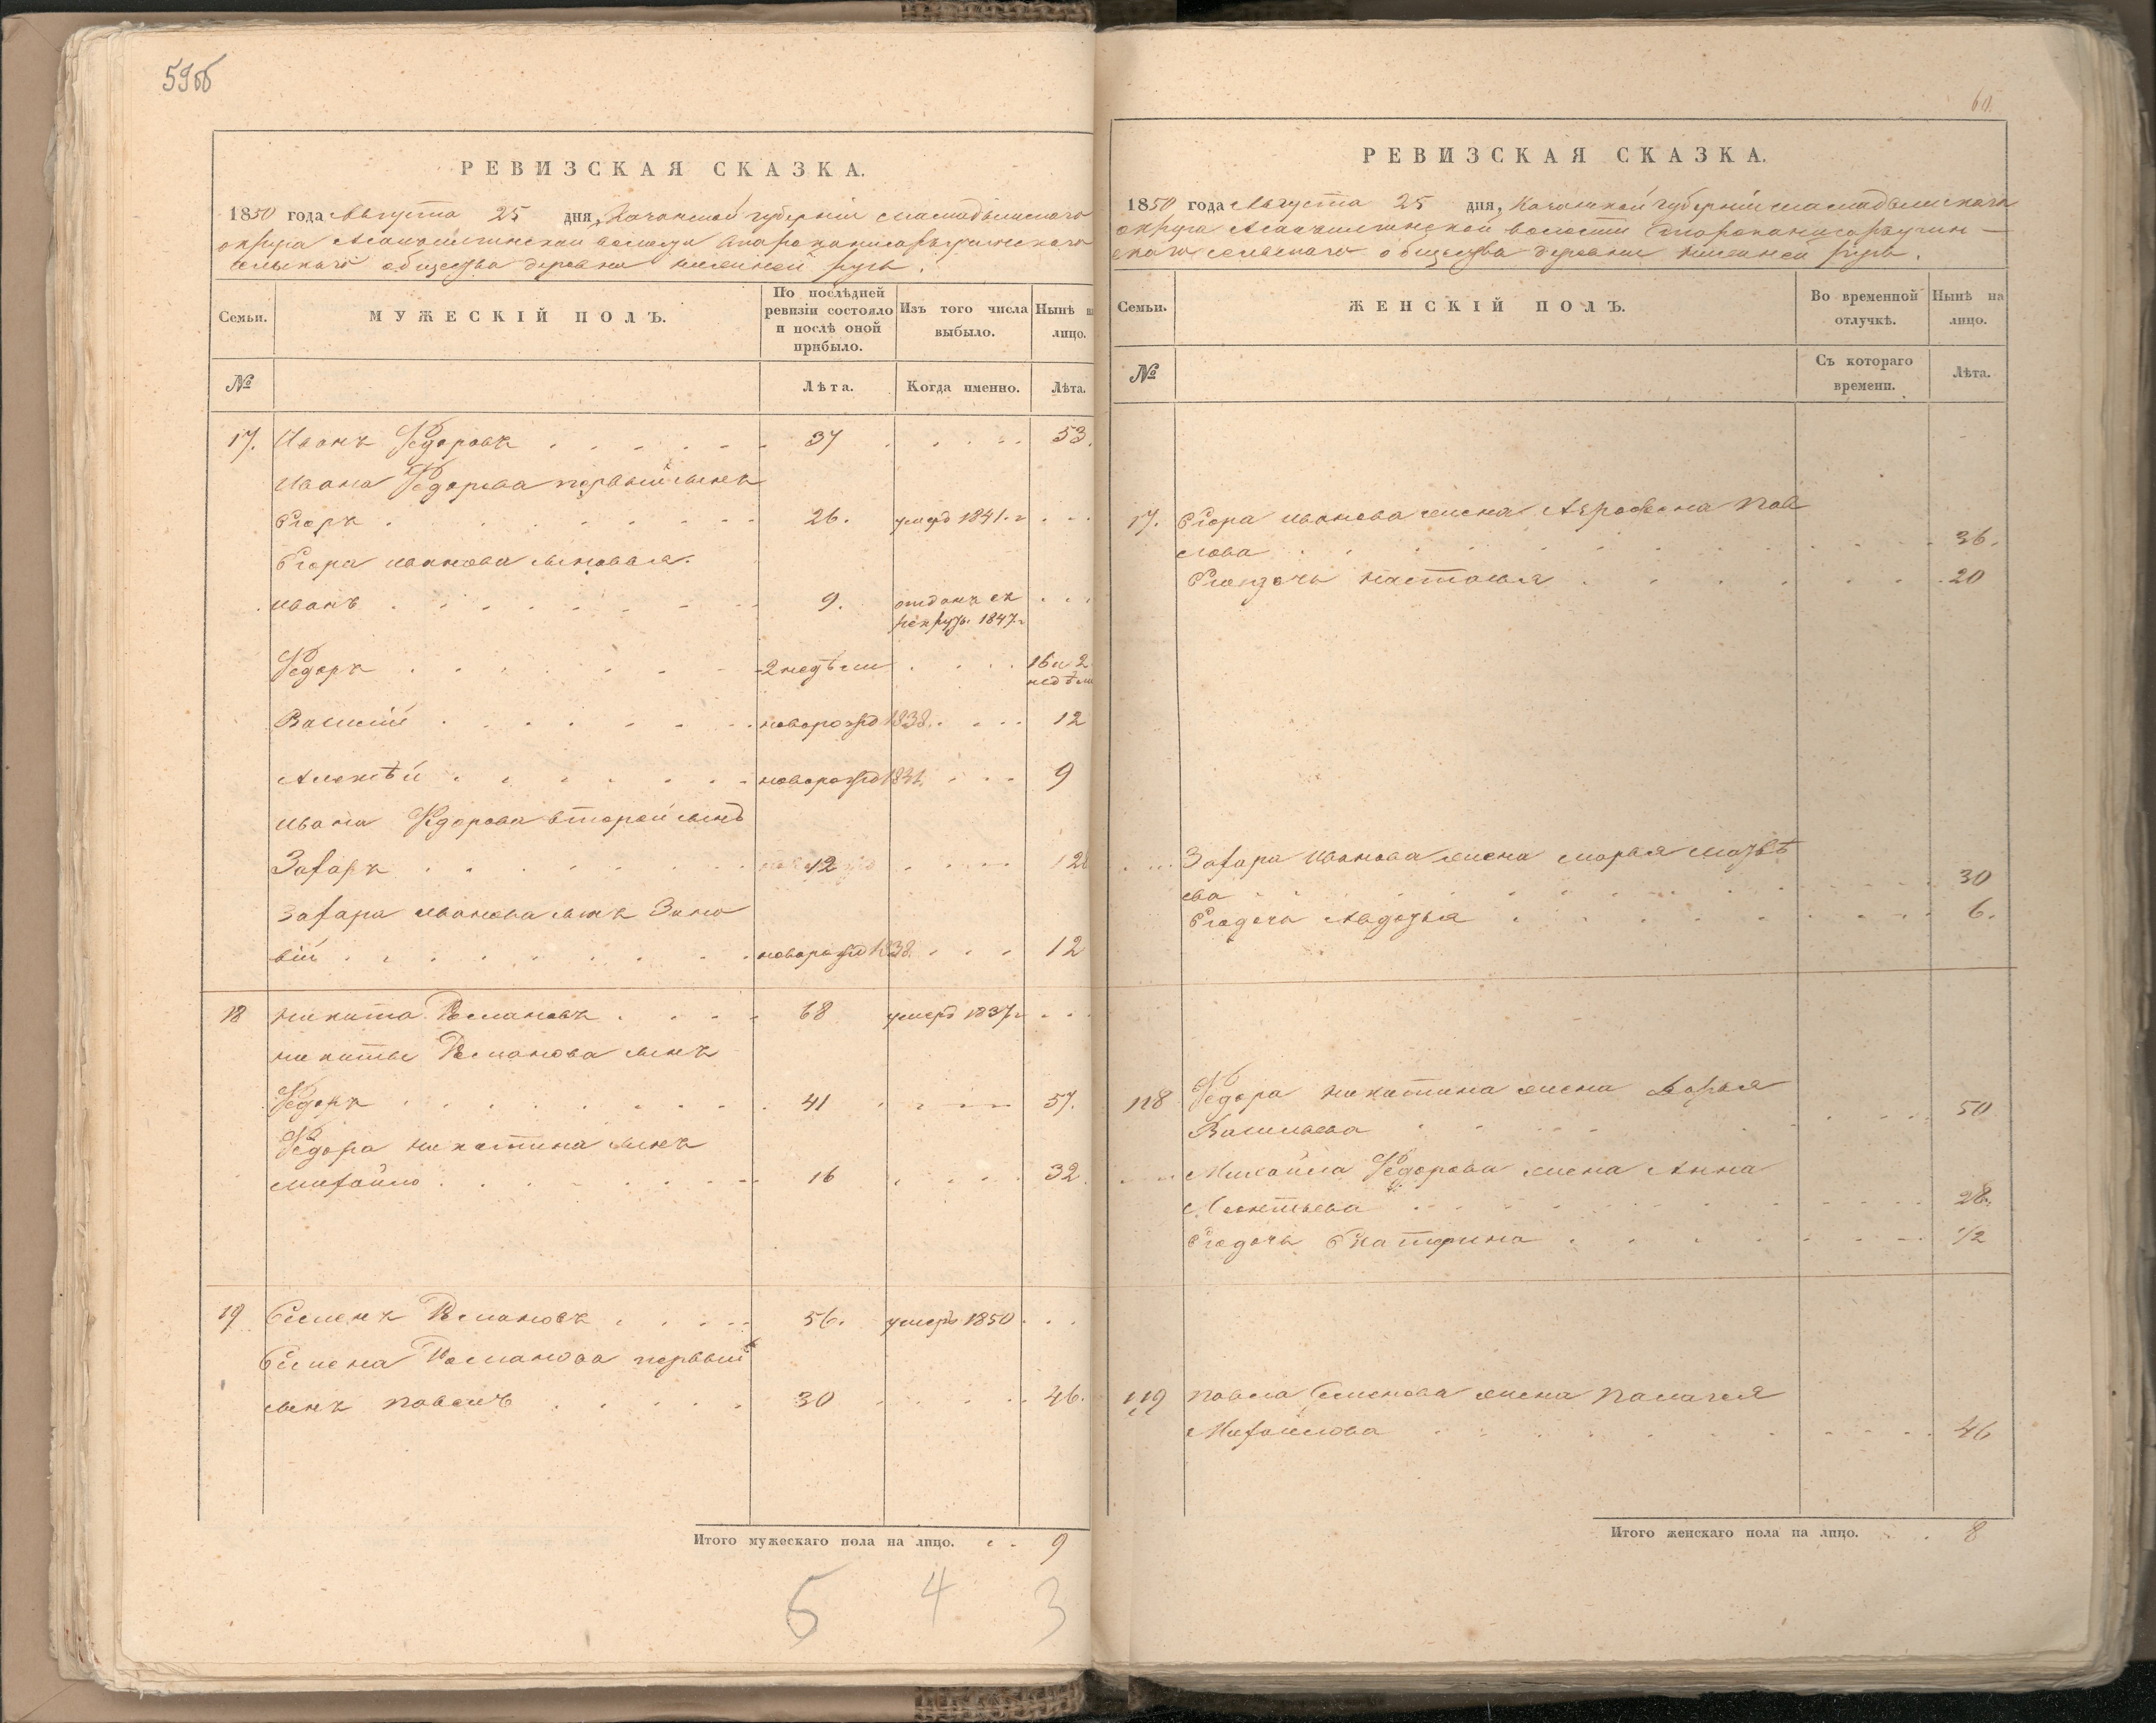 59об
РЕВИЗСКАЯ СКАЗКА.
1850 года Августа 25 дня, Казанской губерніи Мамадышскаго
округа волости
сельскаго общества деревни нижней русь.
Семьи.
МУЖЕСКІЙ ПОЛЪ.
По послѣдней ревизіи состояло и послѣ оной прибыло.
Изъ того числа выбыло.
Нынѣ на лицо.
№
Лѣта.
Когда именно.
Лѣта.
17. Иванъ Федоровъ 37 53.
Ивана Федорова первый сынъ
Егоръ 26. умеръ 1841. г
Егора иванова сыновья.
иванъ 9. отданъ въ
рекруты 1847 г
Федоръ 2 недѣли 16 и 2
недѣли
Василій новорожд 1838. 12
Алексѣй новорожд 9
ивана Федорова второй сынъ
Захаръ 12 28
Захара иванова сынъ Зино
вій новорожд 1838. 12
18 никита Романовъ 68 умеръ 1837 г
никиты Романова сынъ
Федоръ 41 57.
Федора никитина сынъ
михайло 16 32.
19 Семенъ Романовъ 56. умеръ 1850
Семена Романова первый
сынъ павелъ 30 46.
Итого мужескаго пола на лицо. 9
5 4 3
60.
РЕВИЗСКАЯ СКАЗКА.
1850 года Августа 25 дня, Казанской губерніи мамадышскаго
округа волости
скаго сельскаго общества деревни нижней русь.
Семьи.
ЖЕНСКІЙ ПОЛЪ.
Во временной отлучкѣ.
Нынѣ на лицо.
№
Съ котораго времени.
Лѣта.
17. Егора иванова жена Афросина пав
лова 36.
Его дочь настасья 20
Захара Иванова жена марья матвѣ
ева 30
Его дочь Авдотья 6.
118 Федора никитина жена Дарья
Васильева 50
Михайла Федорова жена Анна
Леонтьева 28.
Его дочь Екатерина 1/2
119 павла Семенова жена палагея
Михайлова 46
Итого женскаго пола на лицо. 8